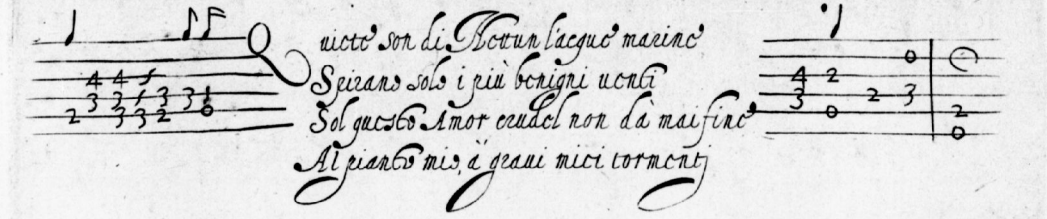 Quiete son di Nettun l'acque marine
Spirano solo i più benigni venti
Sol questo Amor crudel non dà mai fine
Al pianto mio, à gravi miei tormenti